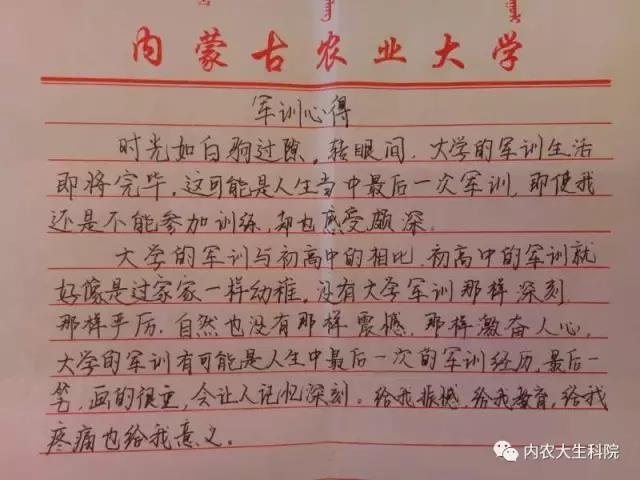 内蒙古农业大学
军训心得
时光如白驹过隙，转眼间，大学的军训生活
即将完毕，这可能是人生当中最后一次军训，即使我
还是不能参加训练，却也感受颇深。
大学的军训与初高中的相比，初高中的军训就
好像是过家家一样幼稚，没有大学军训那样深刻
那样严厉，自然也没有那样震撼，那样激奋人心，
大学的军训有可能是人生中最后一次的军训经历，最后一
笔，画的很重，会让人记忆深刻。给我振撼，给我教育，给我
疼痛也给我意义。
内农大生科院